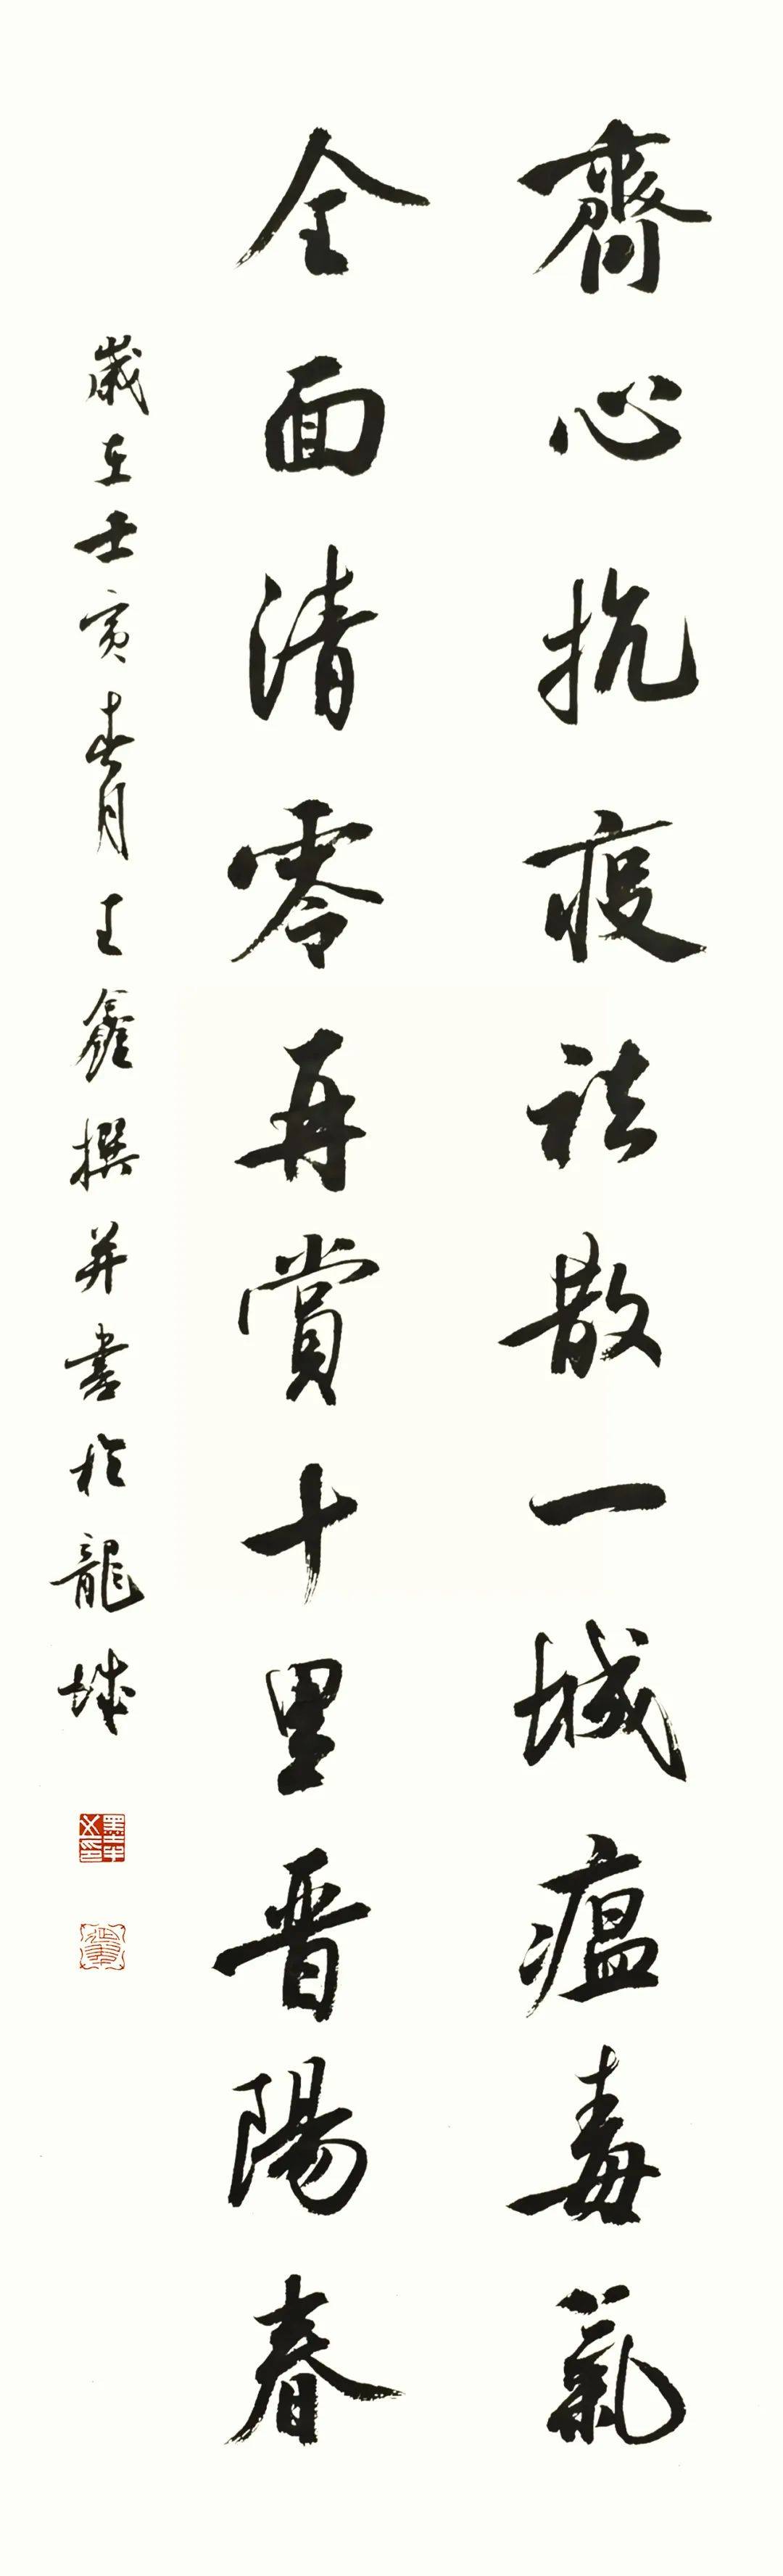 齊心抗疫祛散一城瘟毒氣
全面清零再賞十里晋陽春
歲在壬寅春月王鑫撰并書於龍城